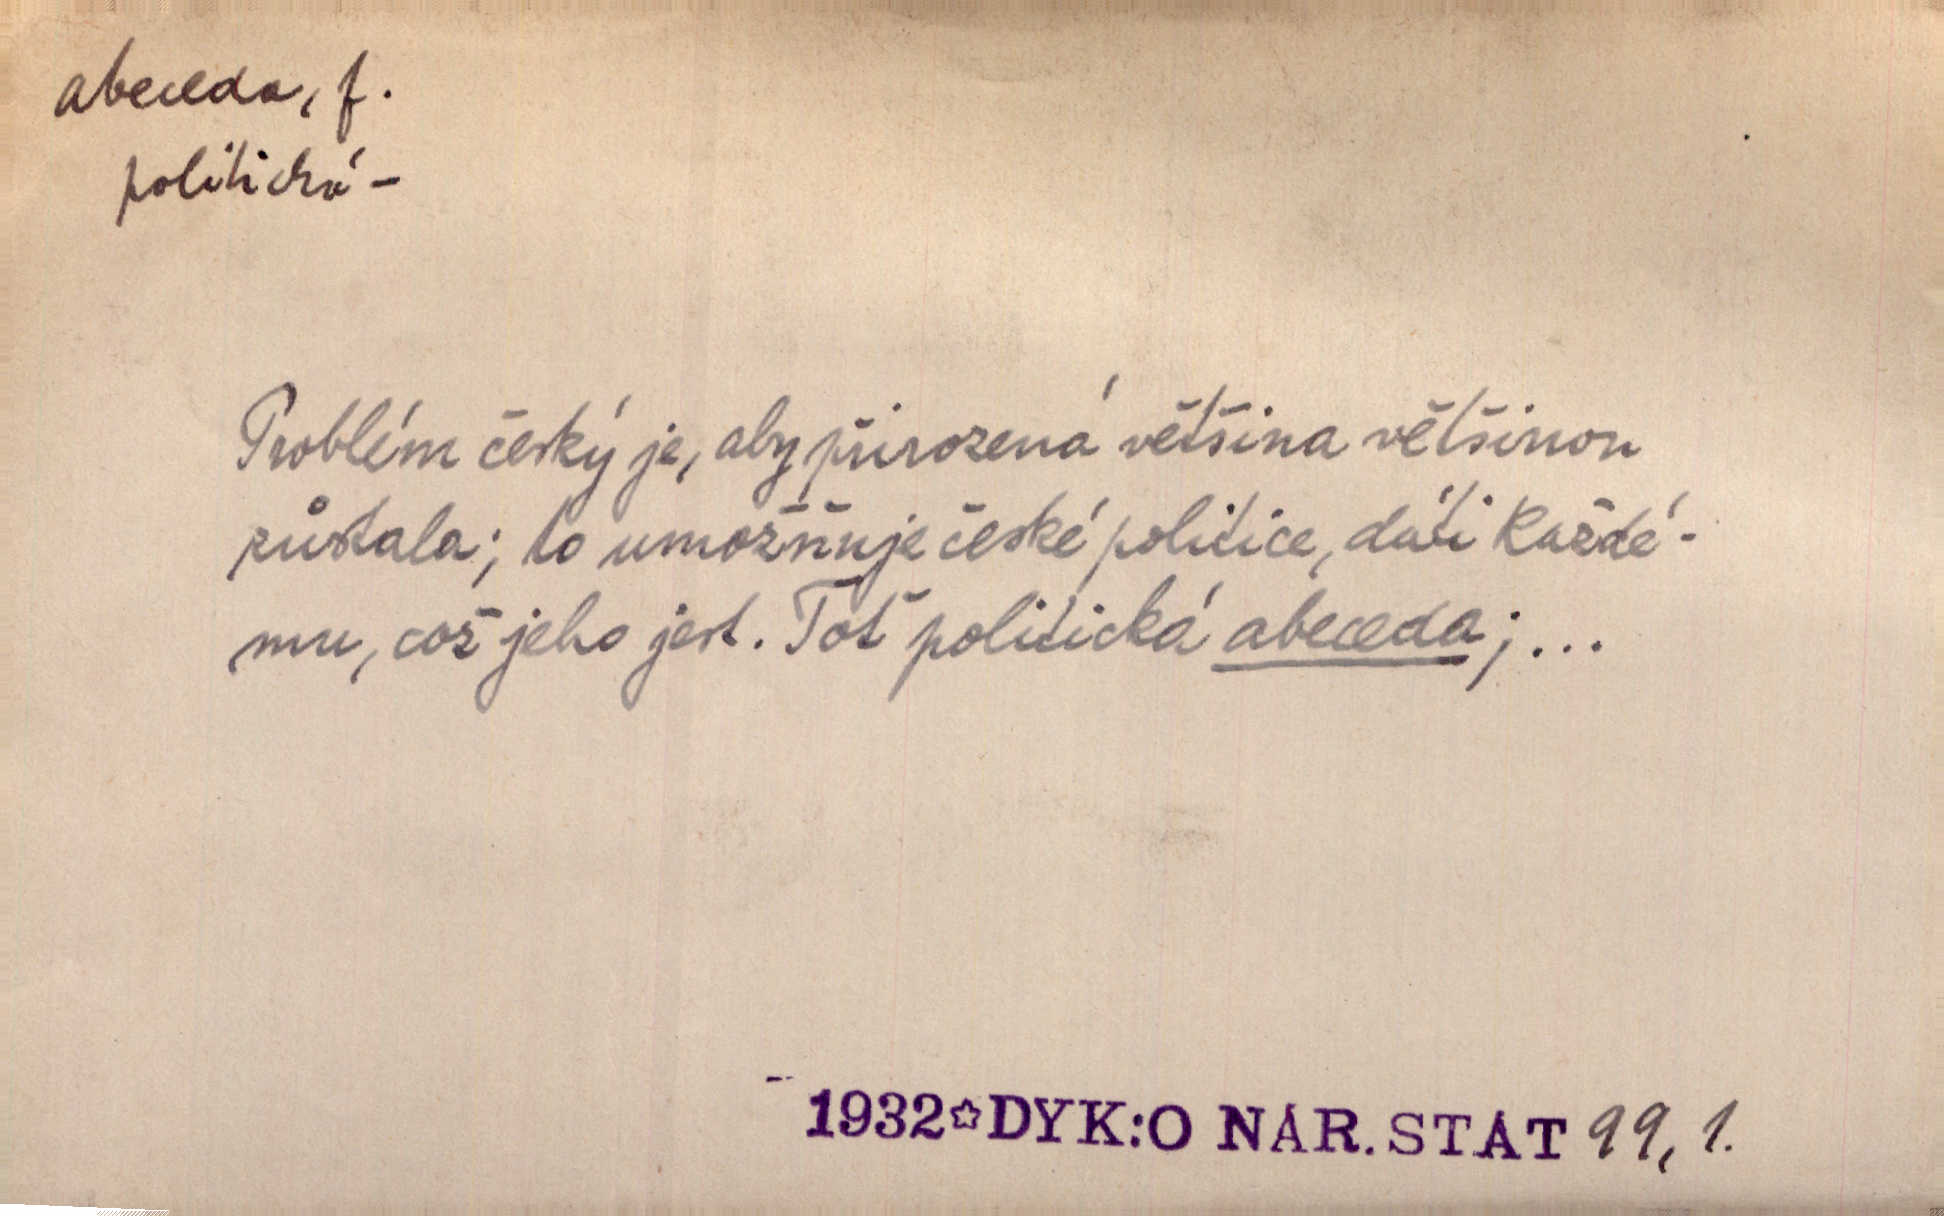 abeceda, f.
politická –
Problém český je, aby přirozená většina většinou
zůstala; to umožňuje české politice, dáti každé-
mu, což jeho jest. Toť politická abeceda; ...
1932☆DYK:O NÁR.STÁT 99, 1.